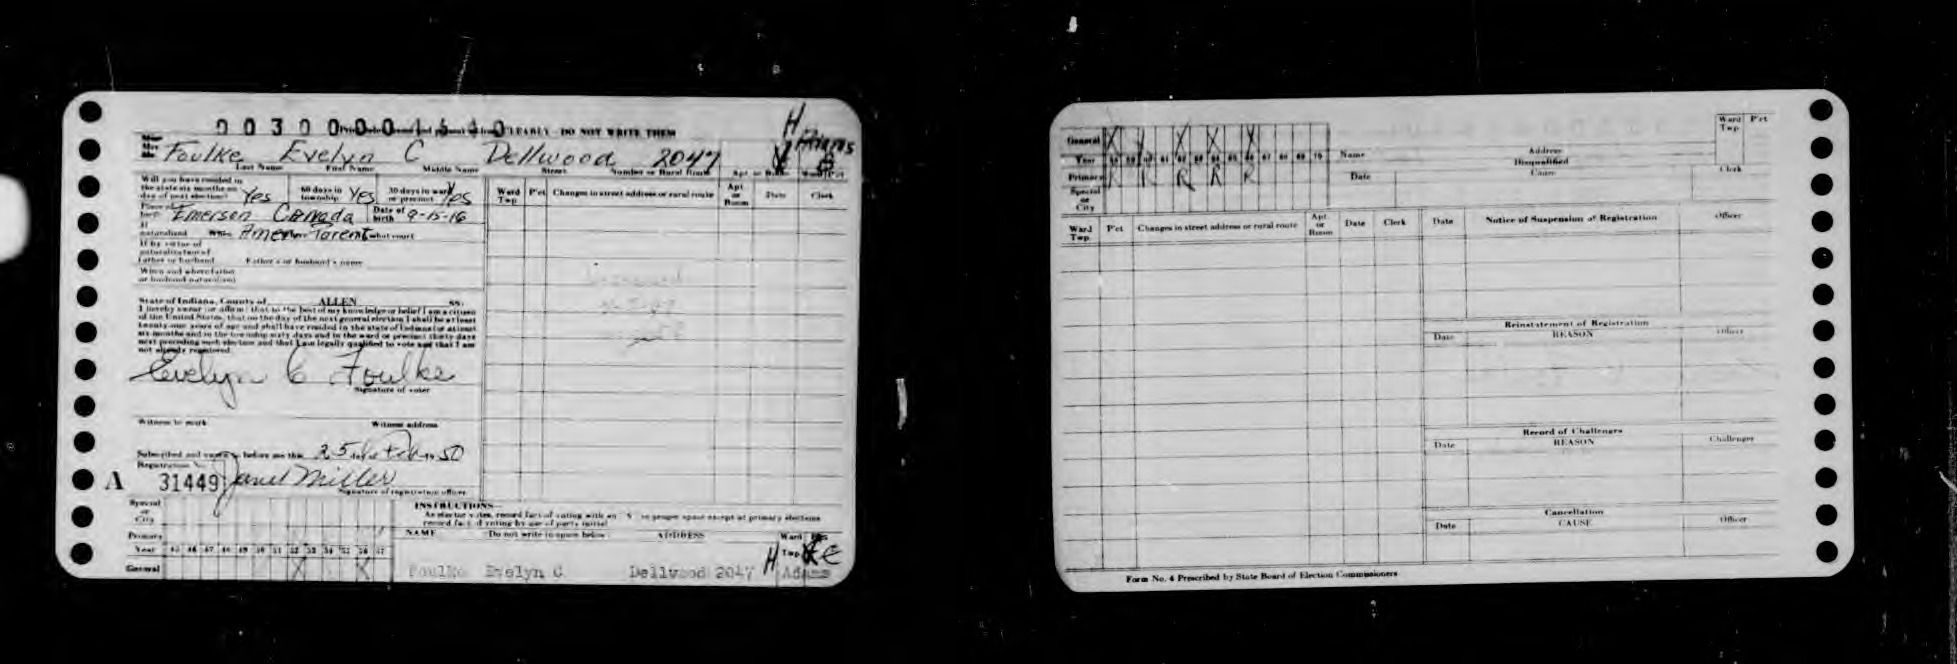 00300001540
CLEARLY - DO NOT WRITE THEM
H
Adams
Foulke Evelyn C Dellwood 2047
Last Name First Name Middle Name Street Number or Rural Route Apt or Room Ward P'ct
Will you have resided in the state six months on day of next election? Yes 60 days in township Yes 30 days in ward or precinct Yes
Place of birth Emerson Canada Date of birth 9-15-16
If naturalized When Amer Parent what court
If by virtue of naturalization of father or husband Father's or husband's name
When and where father or husband naturalized
Ward Twp. P'ct Changes in street address or rural route Apt. or Room Date Clerk
State of Indiana, County of ALLEN ss:
I hereby swear (or affirm) that to the best of my knowledge or belief I am a citizen
of the United States, that on the day of the next general election I shall be at least
twenty-one years of age and shall have resided in the state of Indiana for at least
six months and in the township sixty days and in the ward or precinct thirty days
next preceding such election and that I am legally qualified to vote and that I am
not already registered.
Evelyn C Foulke
Signature of voter
Witness to mark Witness address
Subscribed and sworn to before me this 25 day of Feb 19 50
Registration No.
A 31449 Janet Miller
Signature of registration officer
Special or City
Primary
Year 45 46 47 48 49 50 51 52 53 54 55 56 57
General X X
INSTRUCTIONS—
As elector votes, record fact of voting with an "X" in proper space except at primary elections
record fact of voting by use of party initial
NAME Do not write in space below ADDRESS Ward P'ct
Twp.
Foulke Evelyn C Dellwood 2047 H Adams
General X X X X
Year 58 59 60 61 62 63 64 65 66 67 68 69 70
Primary R R R R R
Special or City
Name Address Ward Twp P'ct
Disqualified
Date Cause Clerk
Ward Twp. P'ct Changes in street address or rural route Apt. or Room Date Clerk
Date Notice of Suspension of Registration Officer
Reinstatement of Registration
Date REASON Officer
Record of Challenges
Date REASON Challenger
Cancellation
Date CAUSE Officer
Form No. 4 Prescribed by State Board of Election Commissioners